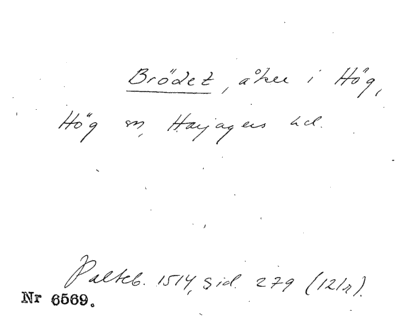 Brödet, åker i Hög,
Hög sn, Harjagers hd.
Palteb. 1514, sid. 279 (12/2).
Nr 6569.